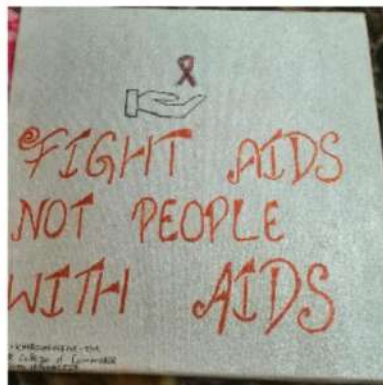 FIGHT AIDS
NOT PEOPLE
WITH AIDS
College of Commerce